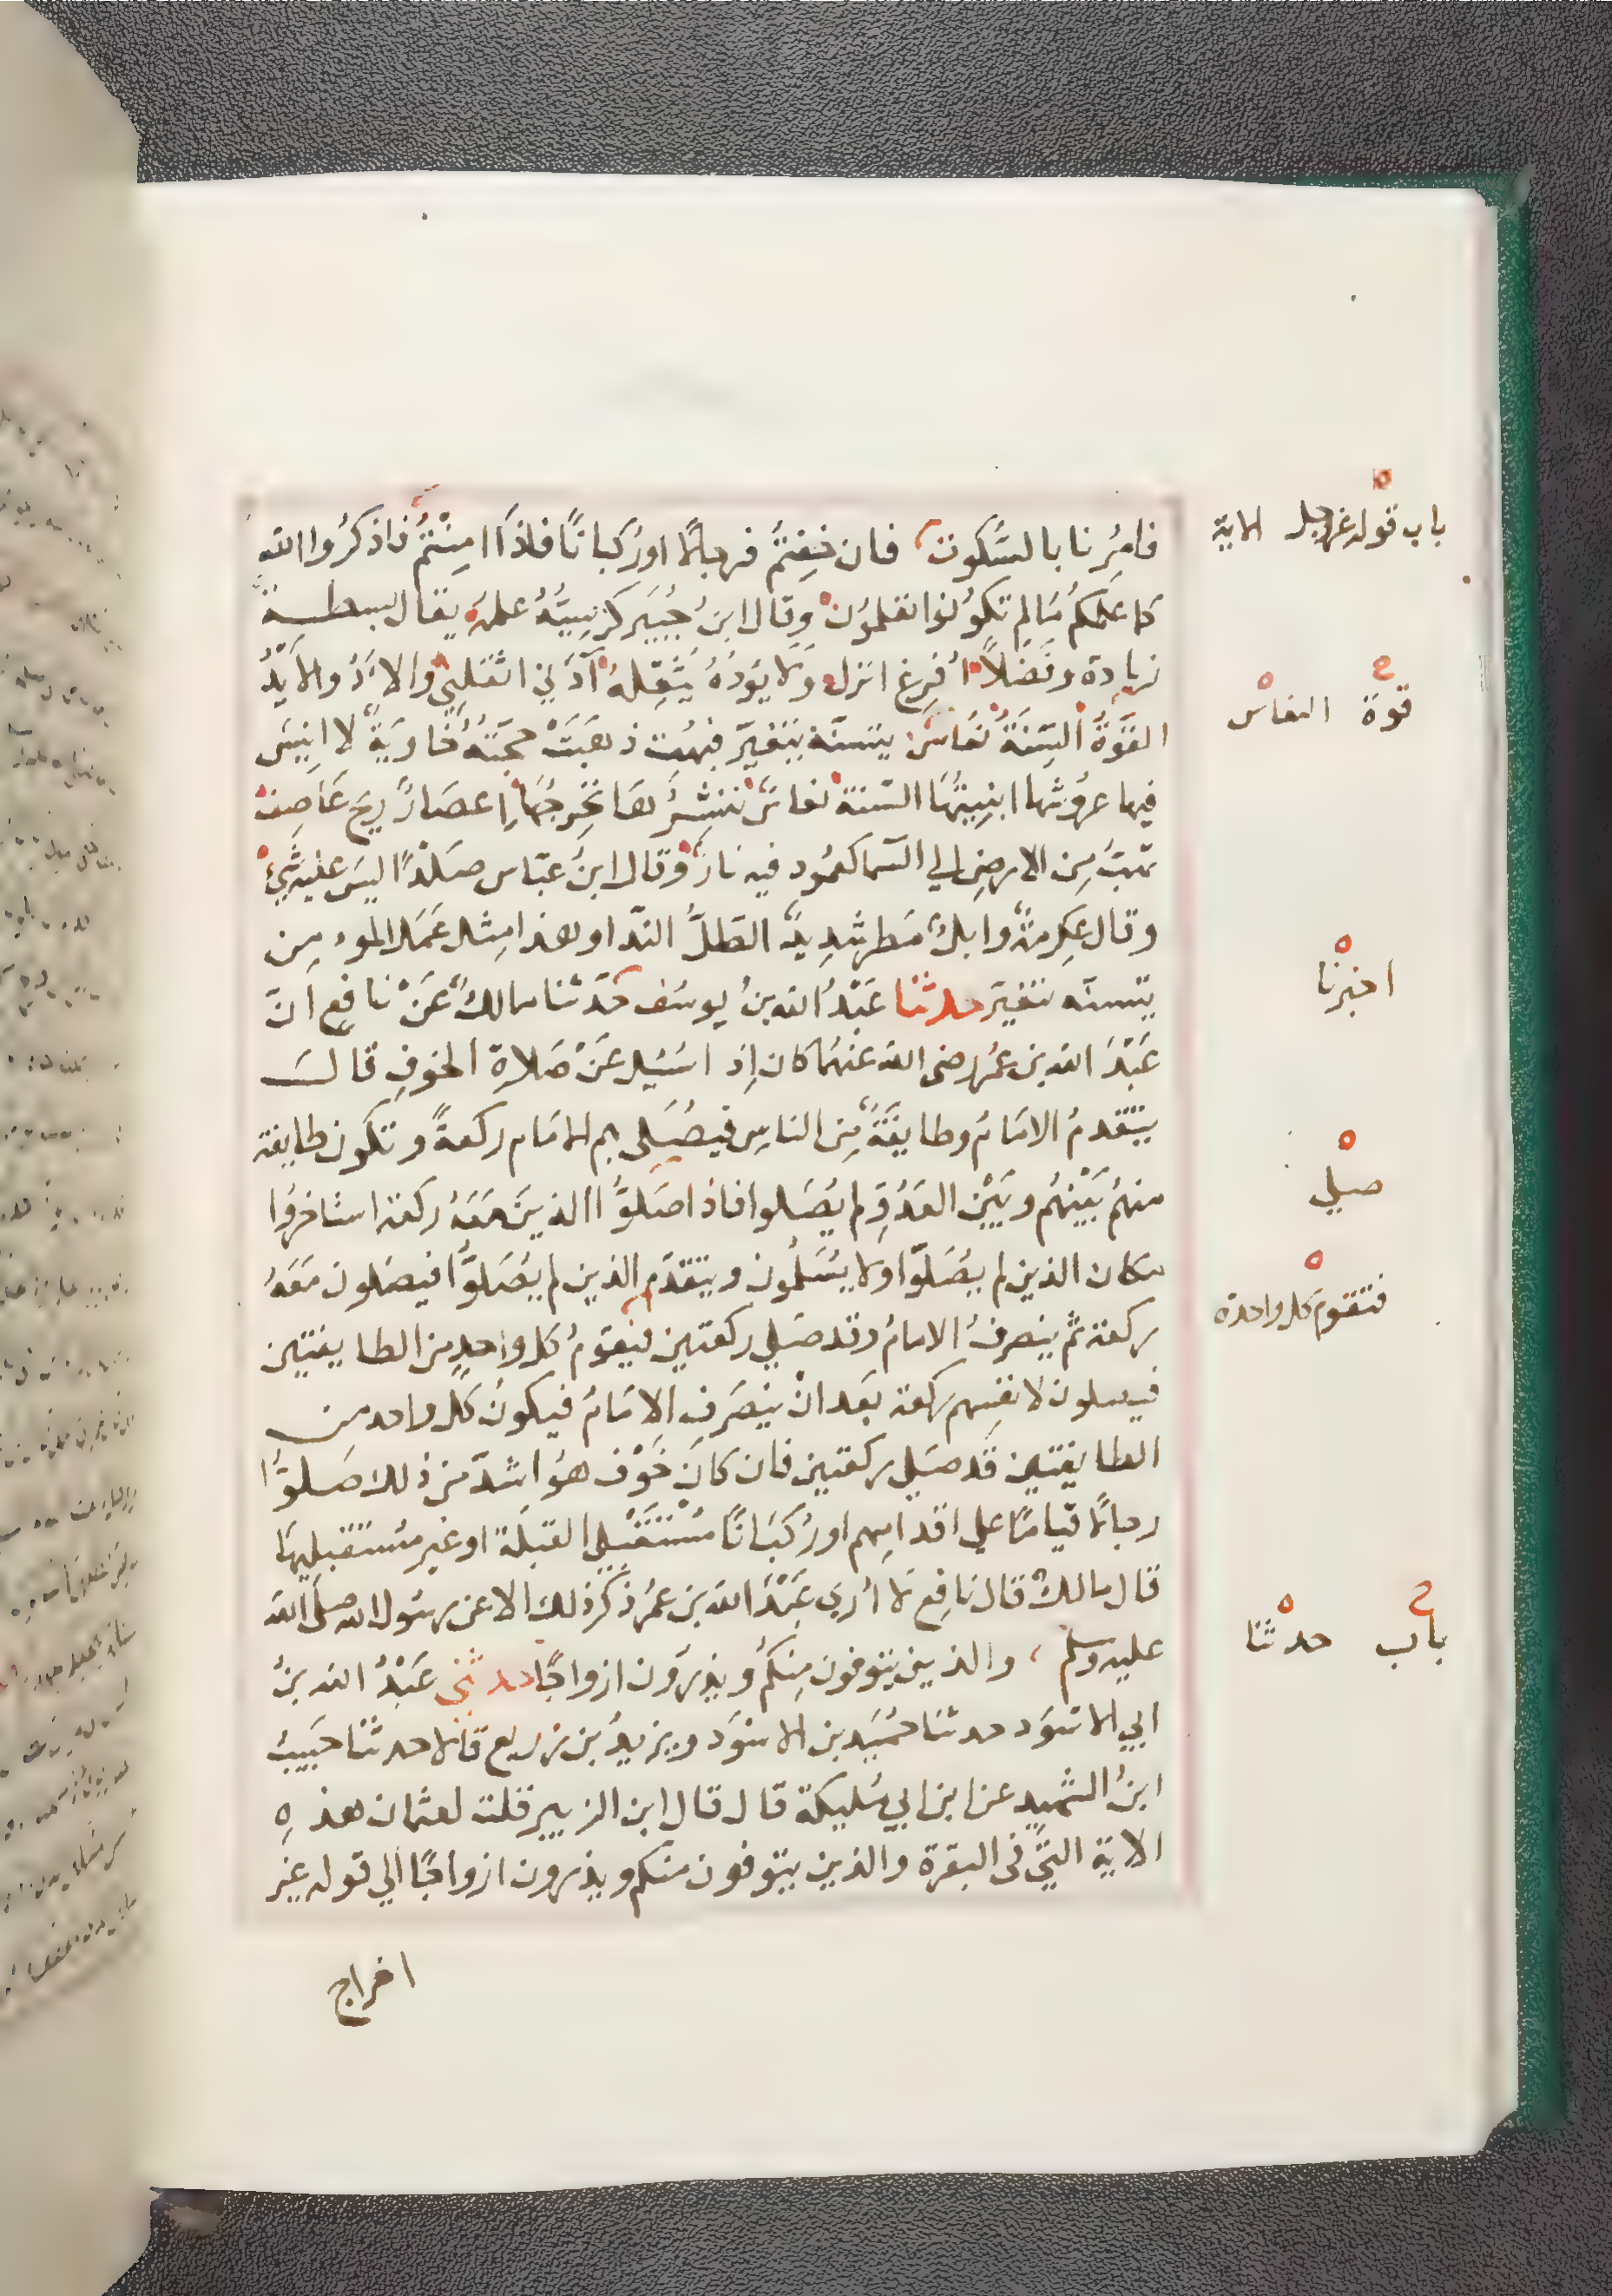 فامرنا بالسكوت فان خفتم فرجالا او ركبانا فاذا امنتم فاذكروا الله
كما علمكم ما لم تكونوا تعلمون وقال ابن جبير كرسيه علمه يقال بسطة
زيادة وفضلا افرغ انزل ولا يؤده يثقله آدني اثقلني والاد والايد
القوة السنة نعاس يتسنه يتغير فبهت ذهبت حجته خاوية لا انيس
فيها عروشها ابنيتها السنة نعاس ننشرها نخرجها اعصار ريح عاصف
تهب من الارض الي السما كعمود فيه نار وقال ابن عباس صلدا ليس عليه شي
وقال عكرمة وابل مطر شديد الطل الندا وهذا مثل عمل المومن
يتسنه يتغير حدثنا عبد الله بن يوسف حدثنا مالك عن نافع ان
عبد الله بن عمر رضى الله عنهما كان اذا سئل عن صلاة الخوف قال
يتقدم الامام وطايفة من الناس فيصلى بهم الامام ركعة وتكون طايفة
منهم بينهم وبين العدو لم يصلوا فاذا صلوا الذين معه ركعة استاخروا
مكان الذين لم يصلوا ولا يسلمون ويتقدم الذين لم يصلوا فيصلون معه
ركعة ثم ينصرف الامام وقد صلي ركعتين فيقوم كل واحد من الطايفتين
فيصلون لانفسهم ركعة بعد ان ينصرف الامام فيكون كل واحد من
الطايفتين قد صلي ركعتين فان كان خوف هو اشد من ذلك صلوا
رجالا قياما علي اقدامهم او ركبانا مستقبلي القبلة او غير مستقبليها
قال مالك قال نافع لا اري عبد الله بن عمر ذكر ذلك الا عن رسول الله صلى الله
عليه وسلم والذين يتوفون منكم ويذرون ازواجا حدثني عبد الله بن
ابي الاسود حدثنا حميد بن الاسود ويزيد بن زريع قالا حدثنا حبيب
ابن الشهيد عن ابن ابي مليكة قال قال ابن الزبير قلت لعثمان هذه
الاية التي فى البقرة والذين يتوفون منكم ويذرون ازواجا الي قوله غير
اخراج
باب قوله عز وجل الاية
قوة النعاس
اخبرنا
صلي
فتقوم كل واحدة
باب حدثنا